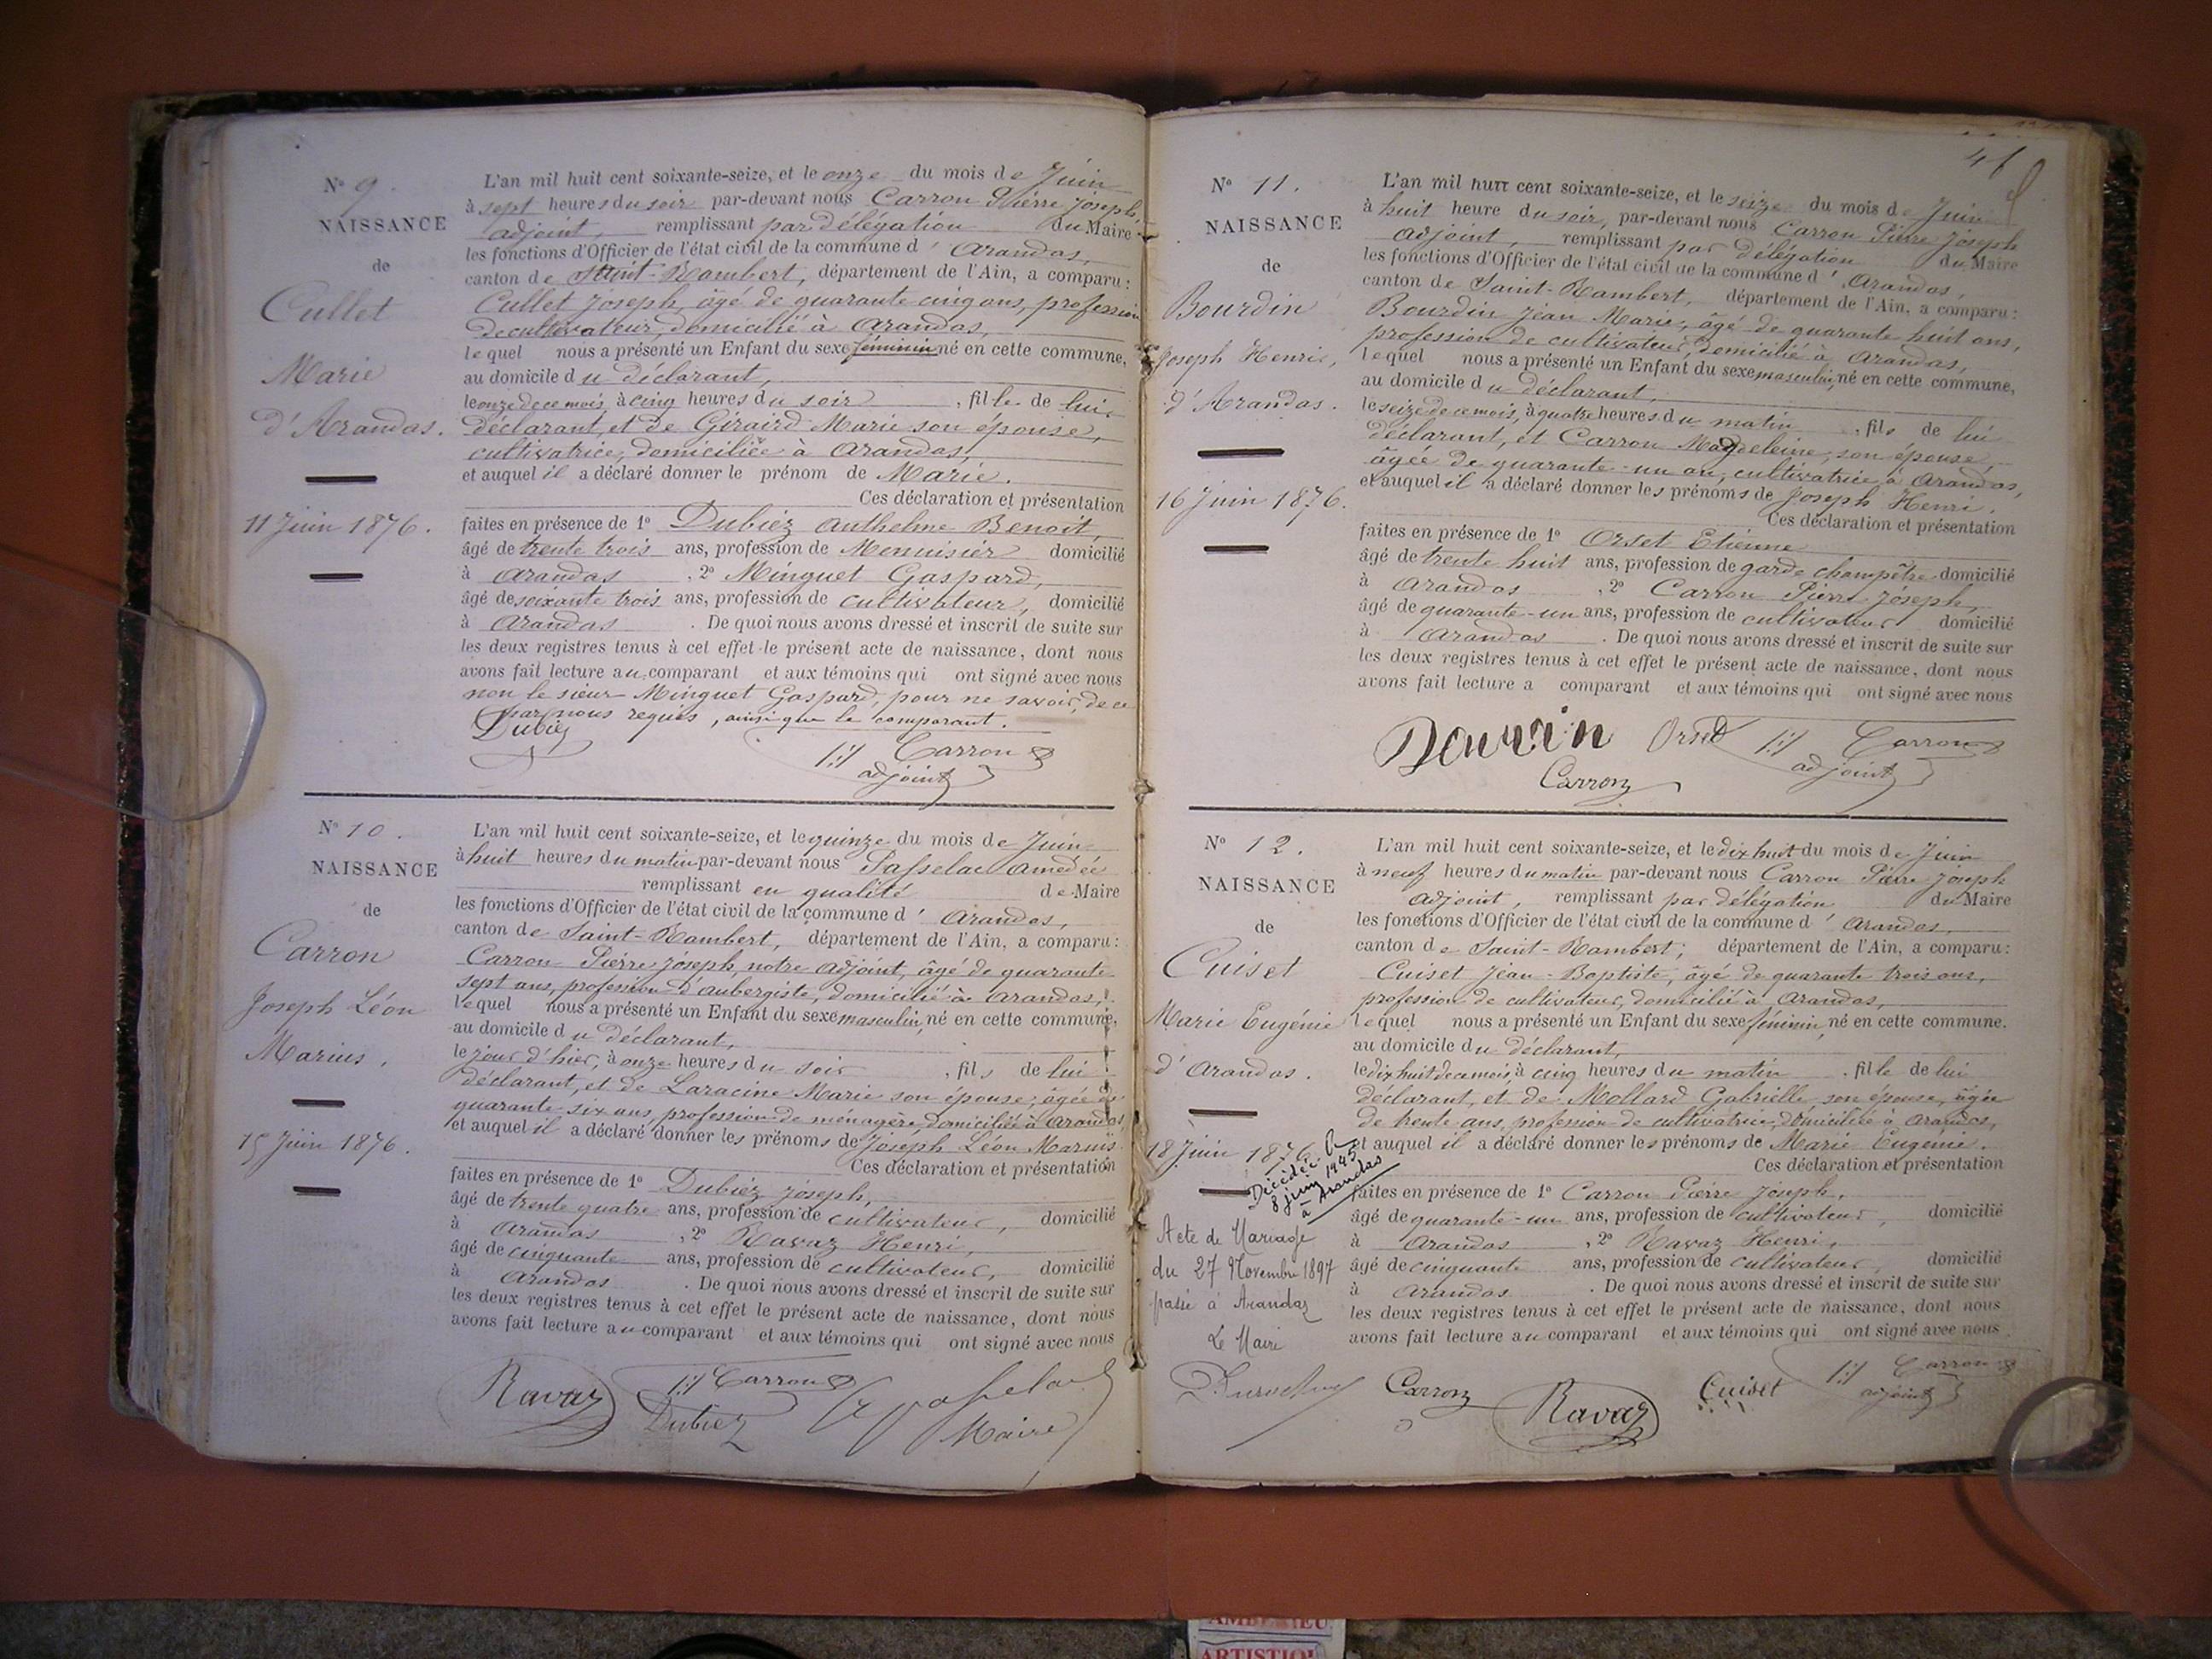 N° 9.
NAISSANCE
de
Cullet
Marie
d'Arandas.
11 Juin 1876.
L'an mil huit cent soixante-seize, et le onze du mois de Juin
à sept heures du soir par-devant nous Carron Pierre Joseph,
adjoint, remplissant par délégation du Maire
les fonctions d'Officier de l'état civil de la commune d' Arandas,
canton de Saint-Rambert, département de l'Ain, a comparu :
Cullet Joseph, âgé de quarante cinq ans, profession
de cultivateur, domicilié à Arandas,
lequel nous a présenté un Enfant du sexe féminin né en cette commune,
au domicile du déclarant,
le onze de ce mois, à cinq heures du soir , fille de lui
déclarant, et de Giraird Marie son épouse,
cultivatrice, domiciliée à Arandas,
et auquel il a déclaré donner le prénom de Marie.
Ces déclaration et présentation
faites en présence de 1° Dubiez Anthelme Benoit,
âgé de trente trois ans, profession de Menuisier domicilié
à Arandas , 2° Minguet Gaspard,
âgé de soixante trois ans, profession de cultivateur, domicilié
à Arandas . De quoi nous avons dressé et inscrit de suite sur
les deux registres tenus à cet effet le présent acte de naissance, dont nous
avons fait lecture au comparant et aux témoins qui ont signé avec nous
non le sieur Minguet Gaspard, pour ne savoir, de ce
par nous requis, ainsi que le comparant.
Dubiez
Carron
adjoint
N° 10.
NAISSANCE
de
Carron
Joseph Léon
Marius.
15 Juin 1876.
L'an mil huit cent soixante-seize, et le quinze du mois de Juin
à huit heures du matin par-devant nous Passelac Amédée
remplissant en qualité de Maire
les fonctions d'Officier de l'état civil de la commune d' Arandas,
canton de Saint-Rambert, département de l'Ain, a comparu :
Carron Pierre Joseph, notre adjoint, âgé de quarante
sept ans, profession d'aubergiste, domicilié à Arandas,
lequel nous a présenté un Enfant du sexe masculin, né en cette commune,
au domicile du déclarant,
le jour d'hier, à onze heures du soir , fils de lui
déclarant, et de Laracine Marie son épouse, âgée de
quarante-six ans, profession de ménagère, domiciliée à Arandas,
et auquel il a déclaré donner les prénoms de Joseph Léon Marius.
Ces déclaration et présentation
faites en présence de 1° Dubiez Joseph,
âgé de trente quatre ans, profession de cultivateur, domicilié
à Arandas , 2° Ravaz Henri,
âgé de cinquante ans, profession de cultivateur, domicilié
à Arandas . De quoi nous avons dressé et inscrit de suite sur
les deux registres tenus à cet effet le présent acte de naissance, dont nous
avons fait lecture au comparant et aux témoins qui ont signé avec nous
Ravaz Carron
Dubiez
Maire
N° 11.
NAISSANCE
de
Bourdin
Joseph Henri,
d'Arandas.
16 Juin 1876.
L'an mil huit cent soixante-seize, et le seize du mois de Juin
à huit heure du soir, par-devant nous Carron Pierre Joseph
adjoint, remplissant par délégation du Maire
les fonctions d'Officier de l'état civil de la commune d' Arandas,
canton de Saint-Rambert, département de l'Ain, a comparu :
Bourdin Jean Marie, âgé de quarante huit ans,
profession de cultivateur, domicilié à Arandas,
lequel nous a présenté un Enfant du sexe masculin, né en cette commune,
au domicile du déclarant,
le seize de ce mois, à quatre heures du matin , fils de lui
déclarant, et Carron Magdeleine, son épouse,
âgée de quarante-un an, cultivatrice à Arandas,
et auquel il a déclaré donner les prénoms de Joseph Henri.
Ces déclaration et présentation
faites en présence de 1° Orset Etienne
âgé de trente huit ans, profession de garde champêtre domicilié
à Arandas , 2° Carron Pierre Joseph,
âgé de quarante-un ans, profession de cultivateur domicilié
à Arandas . De quoi nous avons dressé et inscrit de suite sur
les deux registres tenus à cet effet le présent acte de naissance, dont nous
avons fait lecture a comparant et aux témoins qui ont signé avec nous
Orset Carron
adjoint
Carron
N° 12.
NAISSANCE
de
Cuiset
Marie Eugénie
d'Arandas.
18 Juin 1876.
Décédée le
8 juin 1945
à Arandas
Acte de Mariage
du 27 Novembre 1897
passé à Arandas
Le Maire
L'an mil huit cent soixante-seize, et le dix huit du mois de Juin
à neuf heures du matin par-devant nous Carron Pierre Joseph
adjoint, remplissant par délégation du Maire
les fonctions d'Officier de l'état civil de la commune d' Arandas,
canton de Saint-Rambert, département de l'Ain, a comparu :
Cuiset Jean-Baptiste, âgé de quarante trois ans,
profession de cultivateur, domicilié à Arandas,
lequel nous a présenté un Enfant du sexe féminin, né en cette commune.
au domicile du déclarant,
le dix huit de ce mois, à cinq heures du matin , fille de lui
déclarant, et de Mollard Gabrielle son épouse, âgée
de trente ans, profession de cultivatrice, domiciliée à Arandas,
et auquel il a déclaré donner les prénoms de Marie Eugénie.
Ces déclaration et présentation
faites en présence de 1° Carron Pierre Joseph,
âgé de quarante-un ans, profession de cultivateur, domicilié
à Arandas , 2° Ravaz Henri,
âgé de cinquante ans, profession de cultivateur, domicilié
à Arandas . De quoi nous avons dressé et inscrit de suite sur
les deux registres tenus à cet effet le présent acte de naissance, dont nous
avons fait lecture au comparant et aux témoins qui ont signé avec nous
Carron Ravaz Cuiset Carron
adjoint
ARTISTIQU